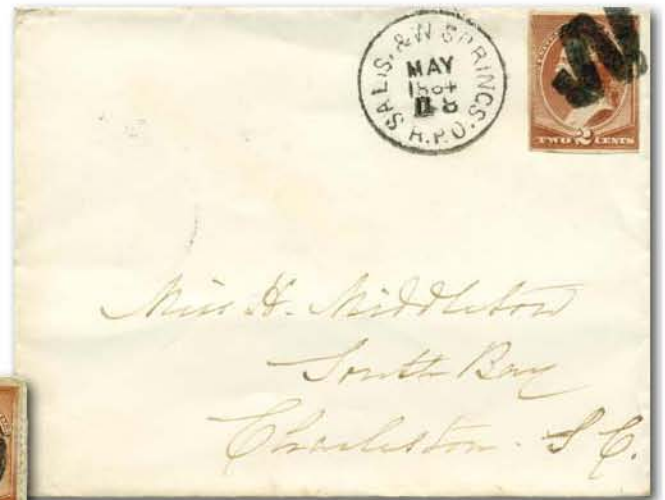 SALIS. & W SPRINGS.
MAY
1884
R.P.O.
TWO 2 CENTS
Miss H. Middleton
South Bay
Charleston. S C.